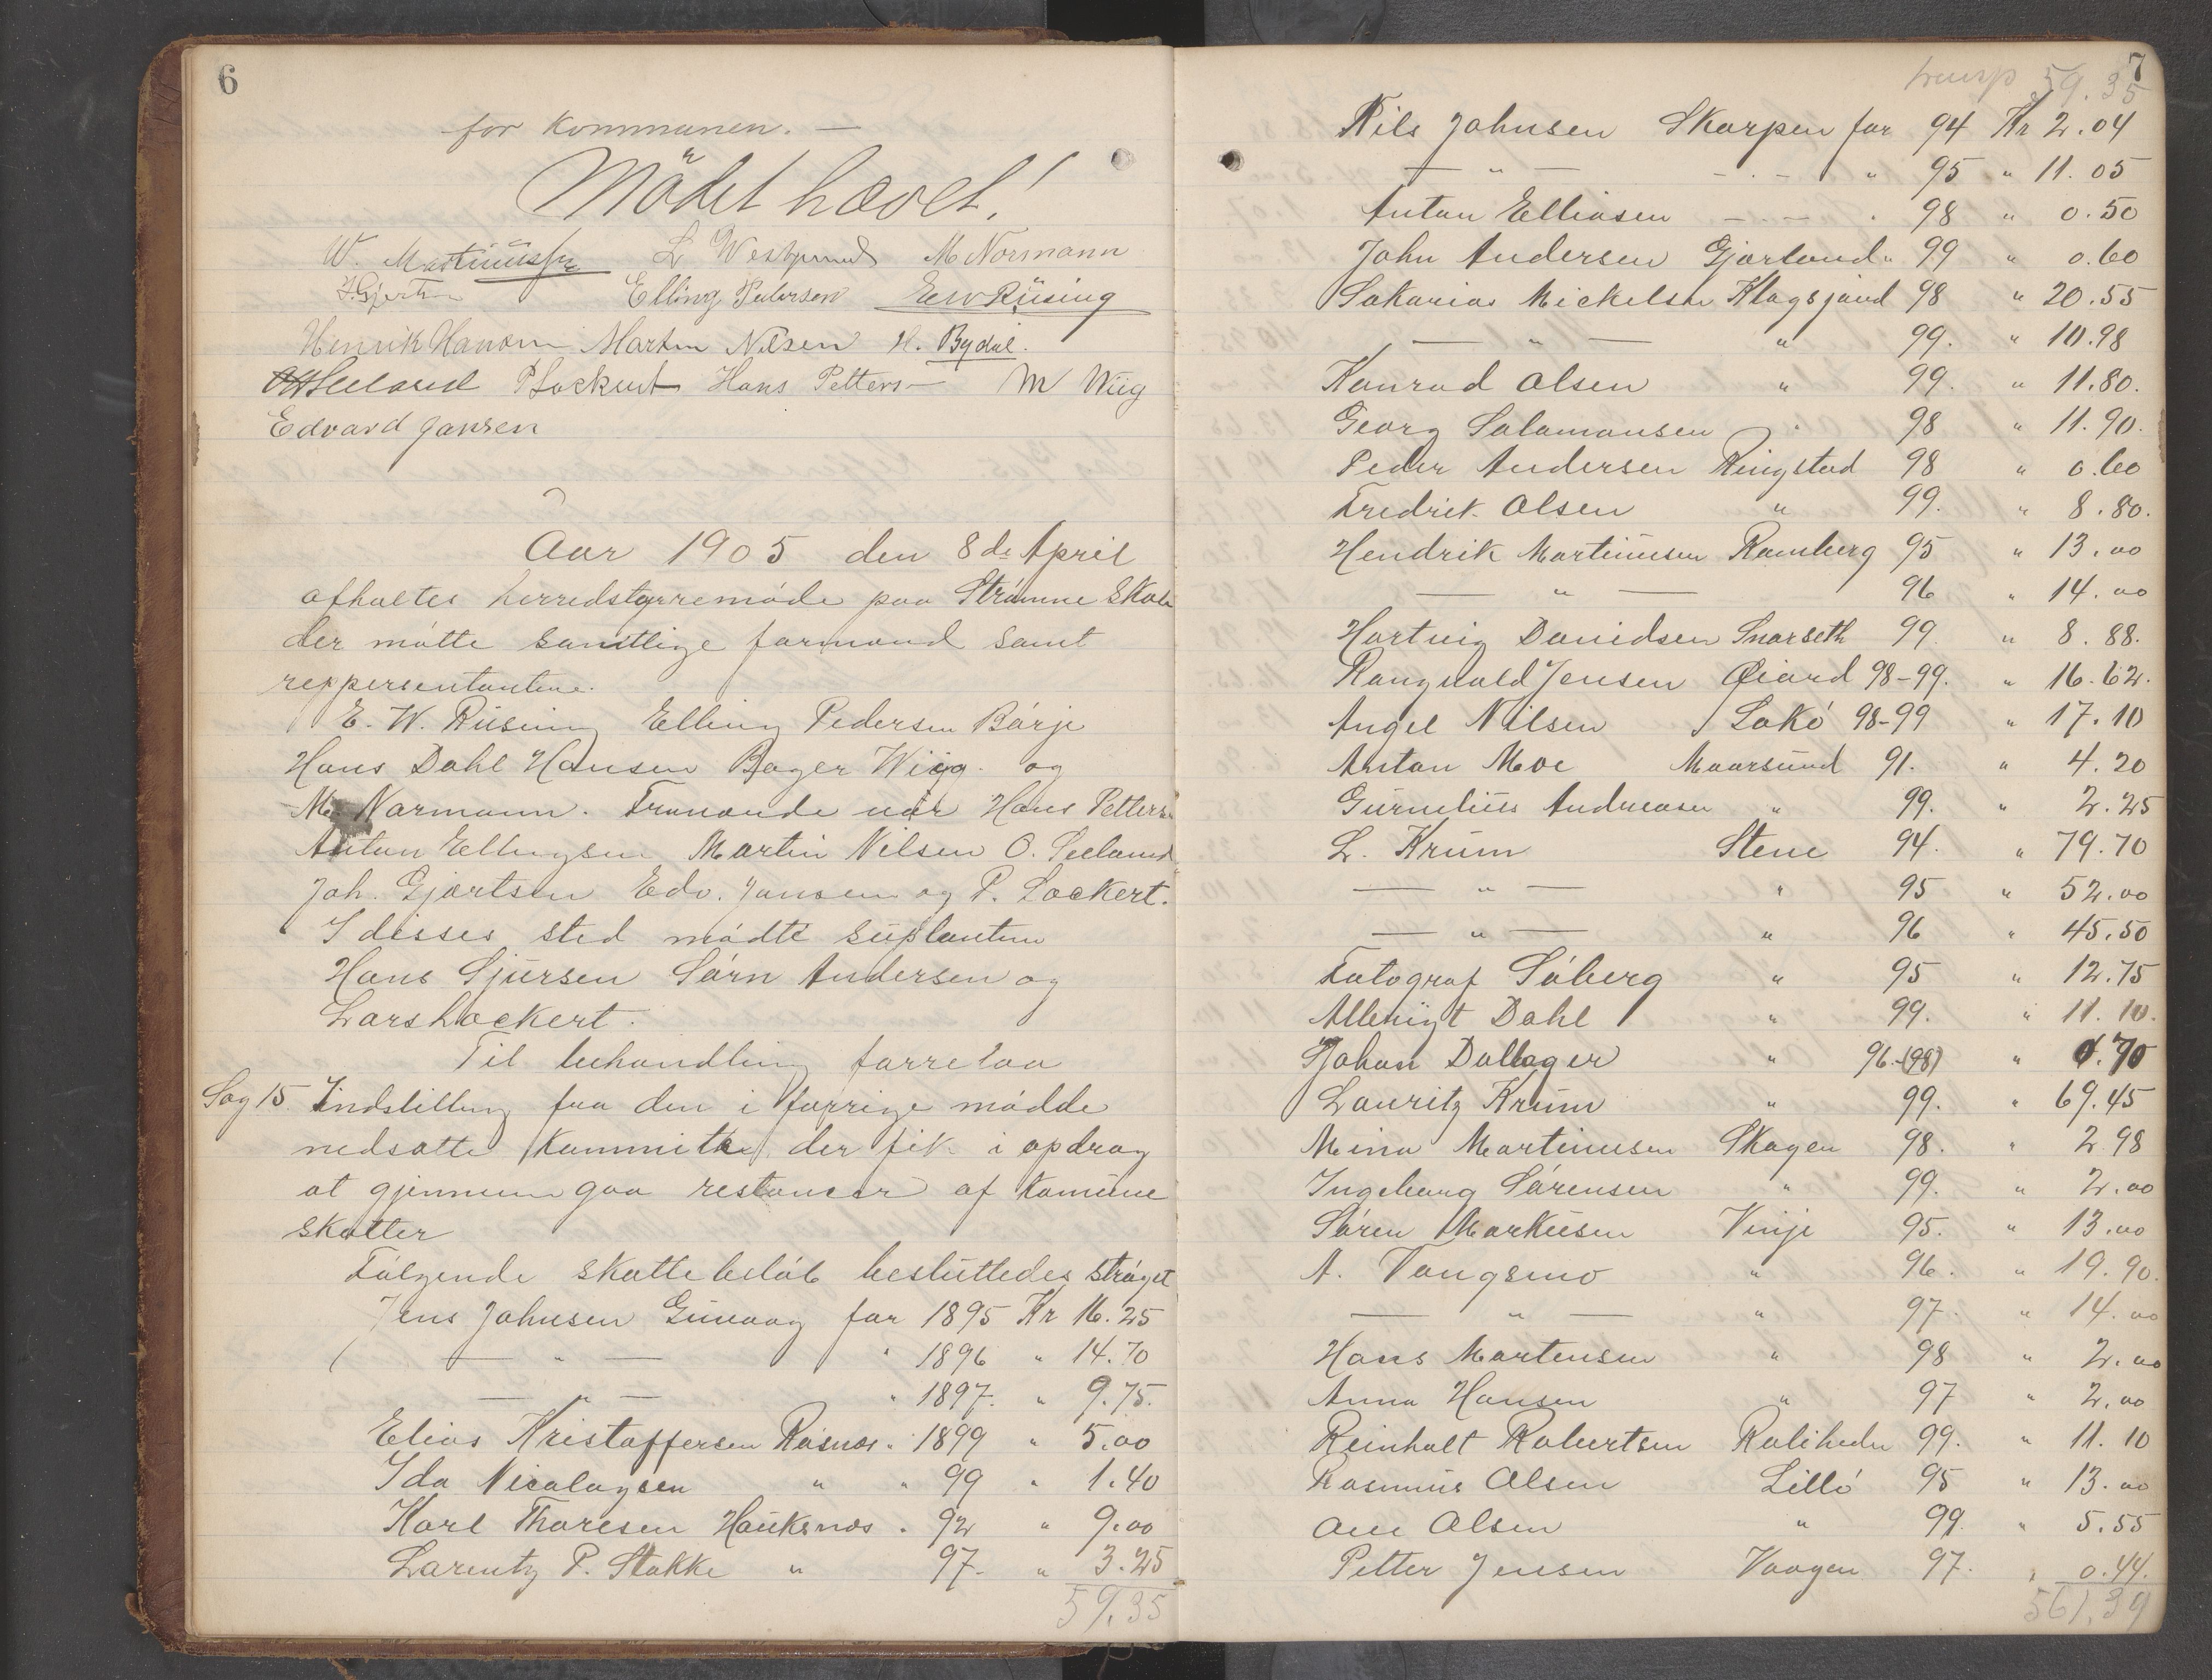 6
for kommunen. —
Mödet hævet!
W. Martinussen L Westgaard M Normann
J. Gjertsen Elling Pedersen EW Rüsing
Henrik Hansen Martin Nilsen H. Bydal.
O Seeland P Lockert Hans Petters— M Wiig
Edvard Jansen
Aar 1905 den 8de April
afholtes herredstyremöde paa Strømme Skole
der mötte samtlige formænd samt
reppersentantene.
E. W. Rüsing Elling Pedersen Börje
Hans Dahl Hansen Bager Wiig og
M. Normann. Fraværende var Hans Petters.
Anton Ellingsen Martin Nilsen O. Seeland
Joh. Gjertsen Edv. Jansen og P. Lockert.
I disses sted mödte süplanten
Hans Sjursen Sörn Andersen og
Lars Lockert.
Til behandling forrelaa
Sag 15. Indstilling fra den i forrige mödde
nedsatte Kommite der fik i opdrag
at gjennemgaa restancer af komüne
skatter
Fölgende skattebelöb besluttedes ströget
Jens Johnsen Guvaag for 1895 Kr 16.25
— " — " 1896 " 14.70
— " — " 1897. " 9.75.
Elias Kristoffersen Røsnæs " 1899 " 5.00
Ida Nicolaysen " " 99 " 1.40
Karl Thoresen Hauknæs " 92 " 9.00
Larentz P. Stokke " 97. " 3.25
59.35
7
transp 59.35
Nils Johnsen Skarpen for 94 Kr 2.04
— " — — " — " 95 " 11.05
Anton Elliasen — " — " 98 " 0.50
John Andersen Gjørland " 99 " 0.60
Sakarias Mickelsen Klagsjord 98 " 20.55
— " — " 99. " 10.98
Konrad Olsen " 99. " 11.80.
Georg Salamonsen " 98 " 11.90.
Peder Andersen Ringstad 98 " 0.60
Fredrik Olsen " 99. " 8.80.
Hendrik Martinusen Ramberg 95 " 13.00
— " — 96 " 14.00
Hartvig Davidsen Snarseth 99. " 8.88.
Rangvald Jensen Øiard 98–99. " 16.62.
Angel Nilsen Lokö 98–99 " 17.10
Anton Moe Maarsund 91. " 4.20
Gurnelius Andreasen " 99. " 2.25
L. Krüm Stene 94. " 79.70
— " — " 95 " 52.00
— " — " 96 " 45.50
Fotograf Söberg " 95 " 12.75
Albrigt Dahl " 99. " 11.10.
Johan Dallager " 96–(98) " 0.70
Lauritz Krüm " 99. " 69.45
Mina Martinusen Skagen 98. " 2.98
Ingeborg Sörensen " 99. " 2.00
Sören Markusen Vinje 95. " 13.00
A. Vangsmo " 96. " 19.90.
— " — " 97. " 14.00
Hans Mortensen " 98 " 2.00
Anna Hansen " 97 " 2.00
Reinholt Robertsen Roliheden 99. " 11.10
Rasmus Olsen Lillö 95 " 13.00
Ane Olsen " 99. " 5.55
Petter Jensen Vaagen 97. " 0.44.
561.39